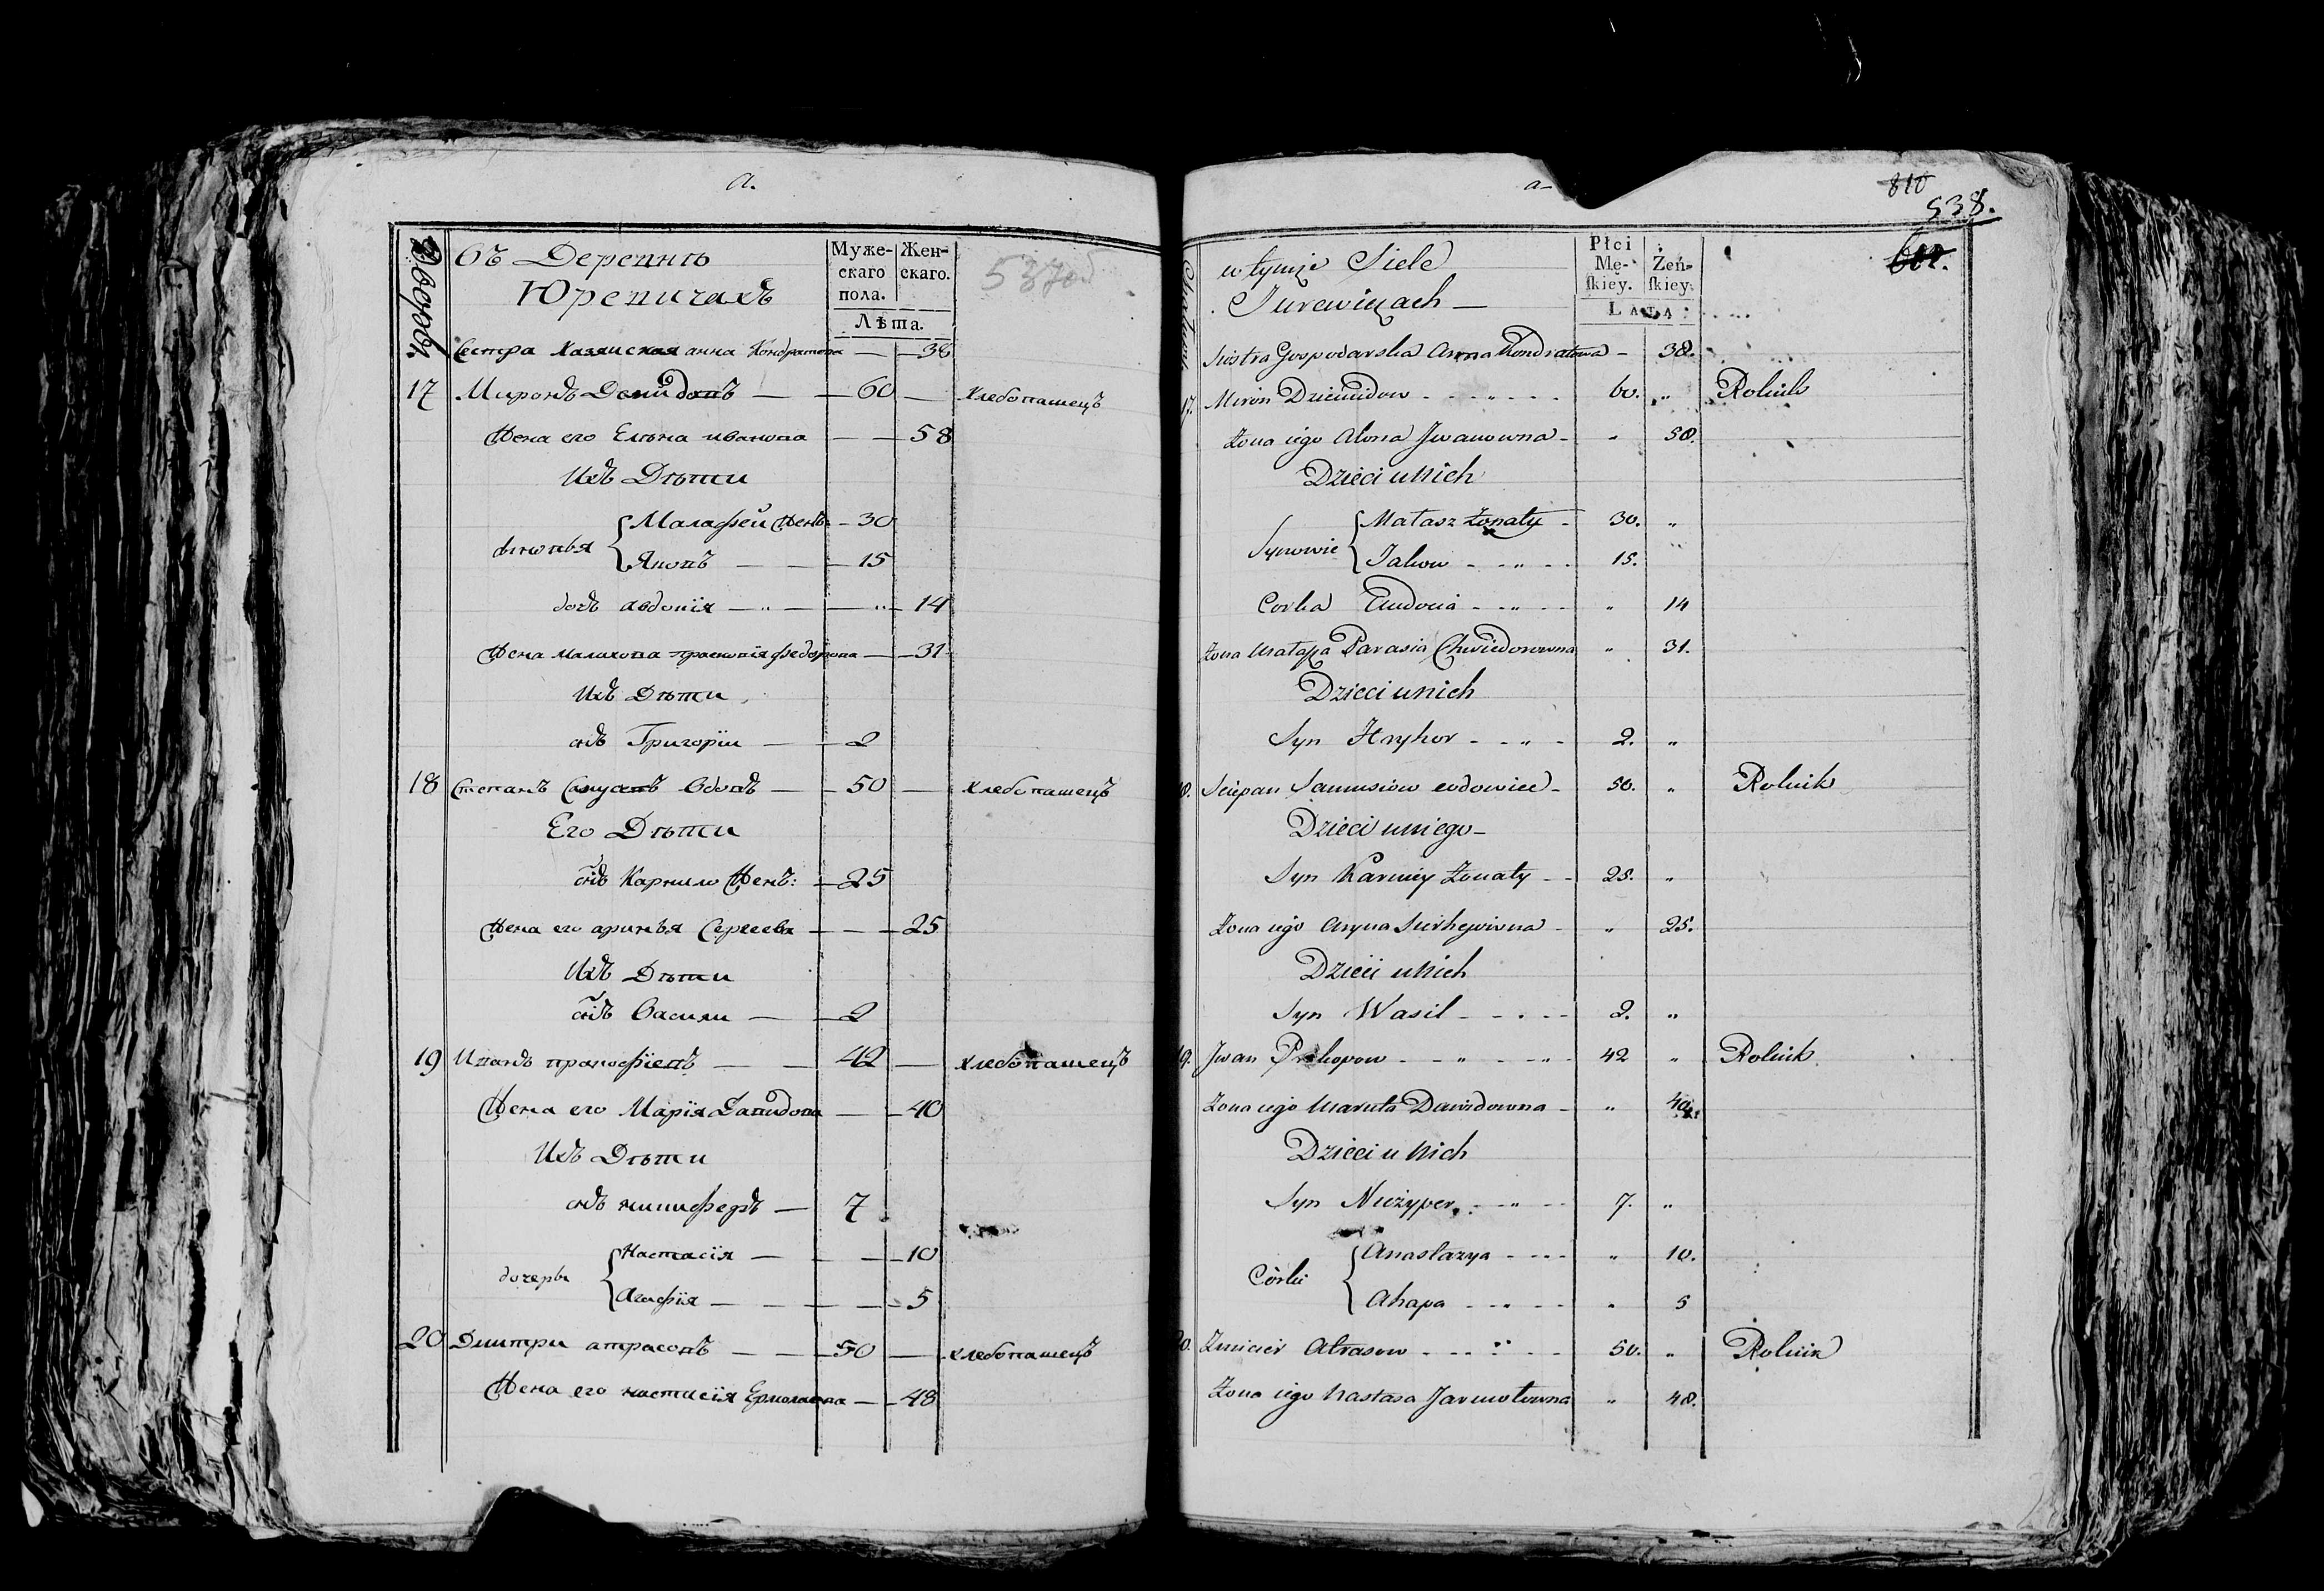 а.
Дворовъ.
Въ Деревнѣ
Юревичахъ
Муже-
скаго
пола.
Жен-
скаго.
Лѣта.
537об
Сестра Хазяиская анна Кондратова — — 38
17 Миронъ Демидовъ — — 60 — хлебопашецъ
Жена его Елена иванова — — 58
Ихъ Дѣти
сыновья { Малафей Жен: — 30
Яковъ — — 15
дочь авдотія — „ — — „ — 14
Жена малахова прасковія федорова — — 31
Ихъ Дѣти
снъ Григорiи — — 2
18 Степанъ Самусевъ вдовъ — — 50 — хлебопашецъ
Его Дѣти
снъ Карнило Женъ: — 25
Жена его аринья Сергеева — — — 25
Ихъ Дѣти
снъ Васили — — 2
19 Иванъ прокофіевъ — — 42 — хлебопашецъ
Жена его Марія Давидова — — 40
Ихъ Дѣти
снъ никиферъ — 7
дочерьи { Настасія — — — 10
Агафія — — — — 5
20 Дмитри атрасовъ — — 50 — хлебопашецъ
Жена его настасія Ермолаева — — 48
а-
810
538.
602.
w tymże Siele
Jurewiczach —
Płci
Mę-
ſkiey.
Żeń-
ſkiey.
LATA
Siostra Gospodarska Anna Kondratowa - 38.
17. Miron Dziemidow - - „ - - - 60. „ Rolnik
Żona iego Alona Jwanowna - „ 58.
Dzieci u Nich
Synowie { Małasz Żonaty - 30. „
Jakow - - „ - - 15. „
Corka Eudocia - - „ - - „ 14
Żona Małasza Parasia Chwiedorowna „ 31.
Dzieci u nich
Syn Hryhor - - „ - 2. „
18. Sciepan Samusiow wdowiec - 50. „ Rolnik
Dzieci u niego -
Syn Karniey Żonaty - - 25. „
Żona iego Aryna Sierhejewna - „ 25.
Dzieci u Nich
Syn Wasil - - - - 2. „
19. Jwan Prokopow - - „ - - „ - 42 „ Rolnik
Żona iego Maruta Dawidowna - „ 40.
Dzieci u Nich
Syn Nieżyper - - „ - - 7. „
Córki { Anastazya - - - - „ 10.
Ahapa - - „ - - „ 5
20. Zmicier Atrasow - - - : - - 50. „ Rolnik
Żona iego Nastasa Jarmołowna „ 48.